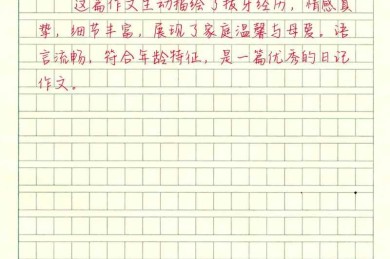 这篇作文生动描绘了拔牙经历，情感真
挚，细节丰富，展现了家庭温馨与母爱。语
言流畅，符合年龄特征，是一篇优秀的日记
作文。